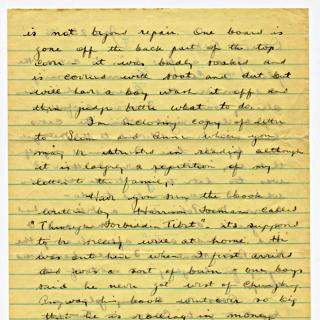 is not beyond repair. One board is
gone off the back part of the top
cover - it was badly soaked and
is covered with soot and dirt but
will have a boy wash it off and
then judge better what to do.
I'm enclosing copy of letter
to and which you
may be interested in reading although
it is largely a repetition of my
letter to the family.
Have you seen the book
written by Harrison Forman called
"Through Forbidden Tibet"; its supposed
to be selling well at home. He
was out here when I first arrived
and was a sort of bum - our boys
said he never got west of Chungking
Anyway his book went over so big
that he is rolling in money